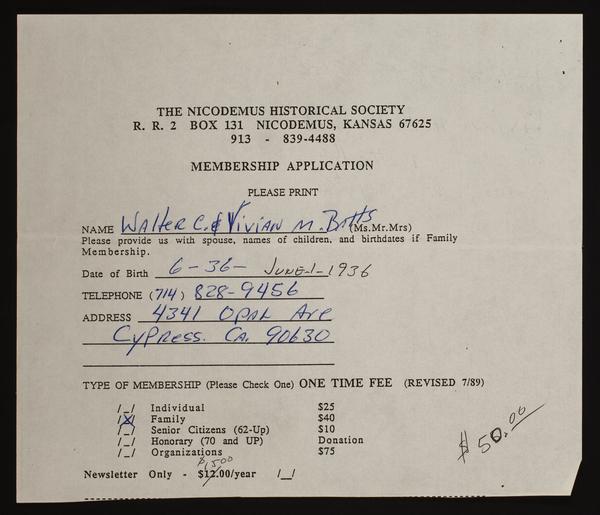 THE NICODEMUS HISTORICAL SOCIETY
R. R. 2 BOX 131 NICODEMUS, KANSAS 67625
913 - 839-4488
MEMBERSHIP APPLICATION
PLEASE PRINT
NAME Walter C. & Vivian M. Botts (Ms.Mr.Mrs)
Please provide us with spouse, names of children, and birthdates if Family
Membership.
Date of Birth 6-36- JUNE-1-1936
TELEPHONE (714) 828-9456
ADDRESS 4341 Opal Ave
Cypress. Ca. 90630
TYPE OF MEMBERSHIP (Please Check One) ONE TIME FEE (REVISED 7/89)
/_/ Individual $25
/X/ Family $40
/_/ Senior Citizens (62-Up) $10
/_/ Honorary (70 and UP) Donation
/_/ Organizations $75
$50.00
$15.00
Newsletter Only - $12.00/year /_/